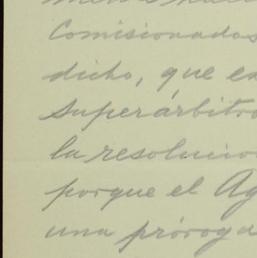 Comisionados
dicho, que
superárbitro
la resolucio
porque el Ag
una próroga